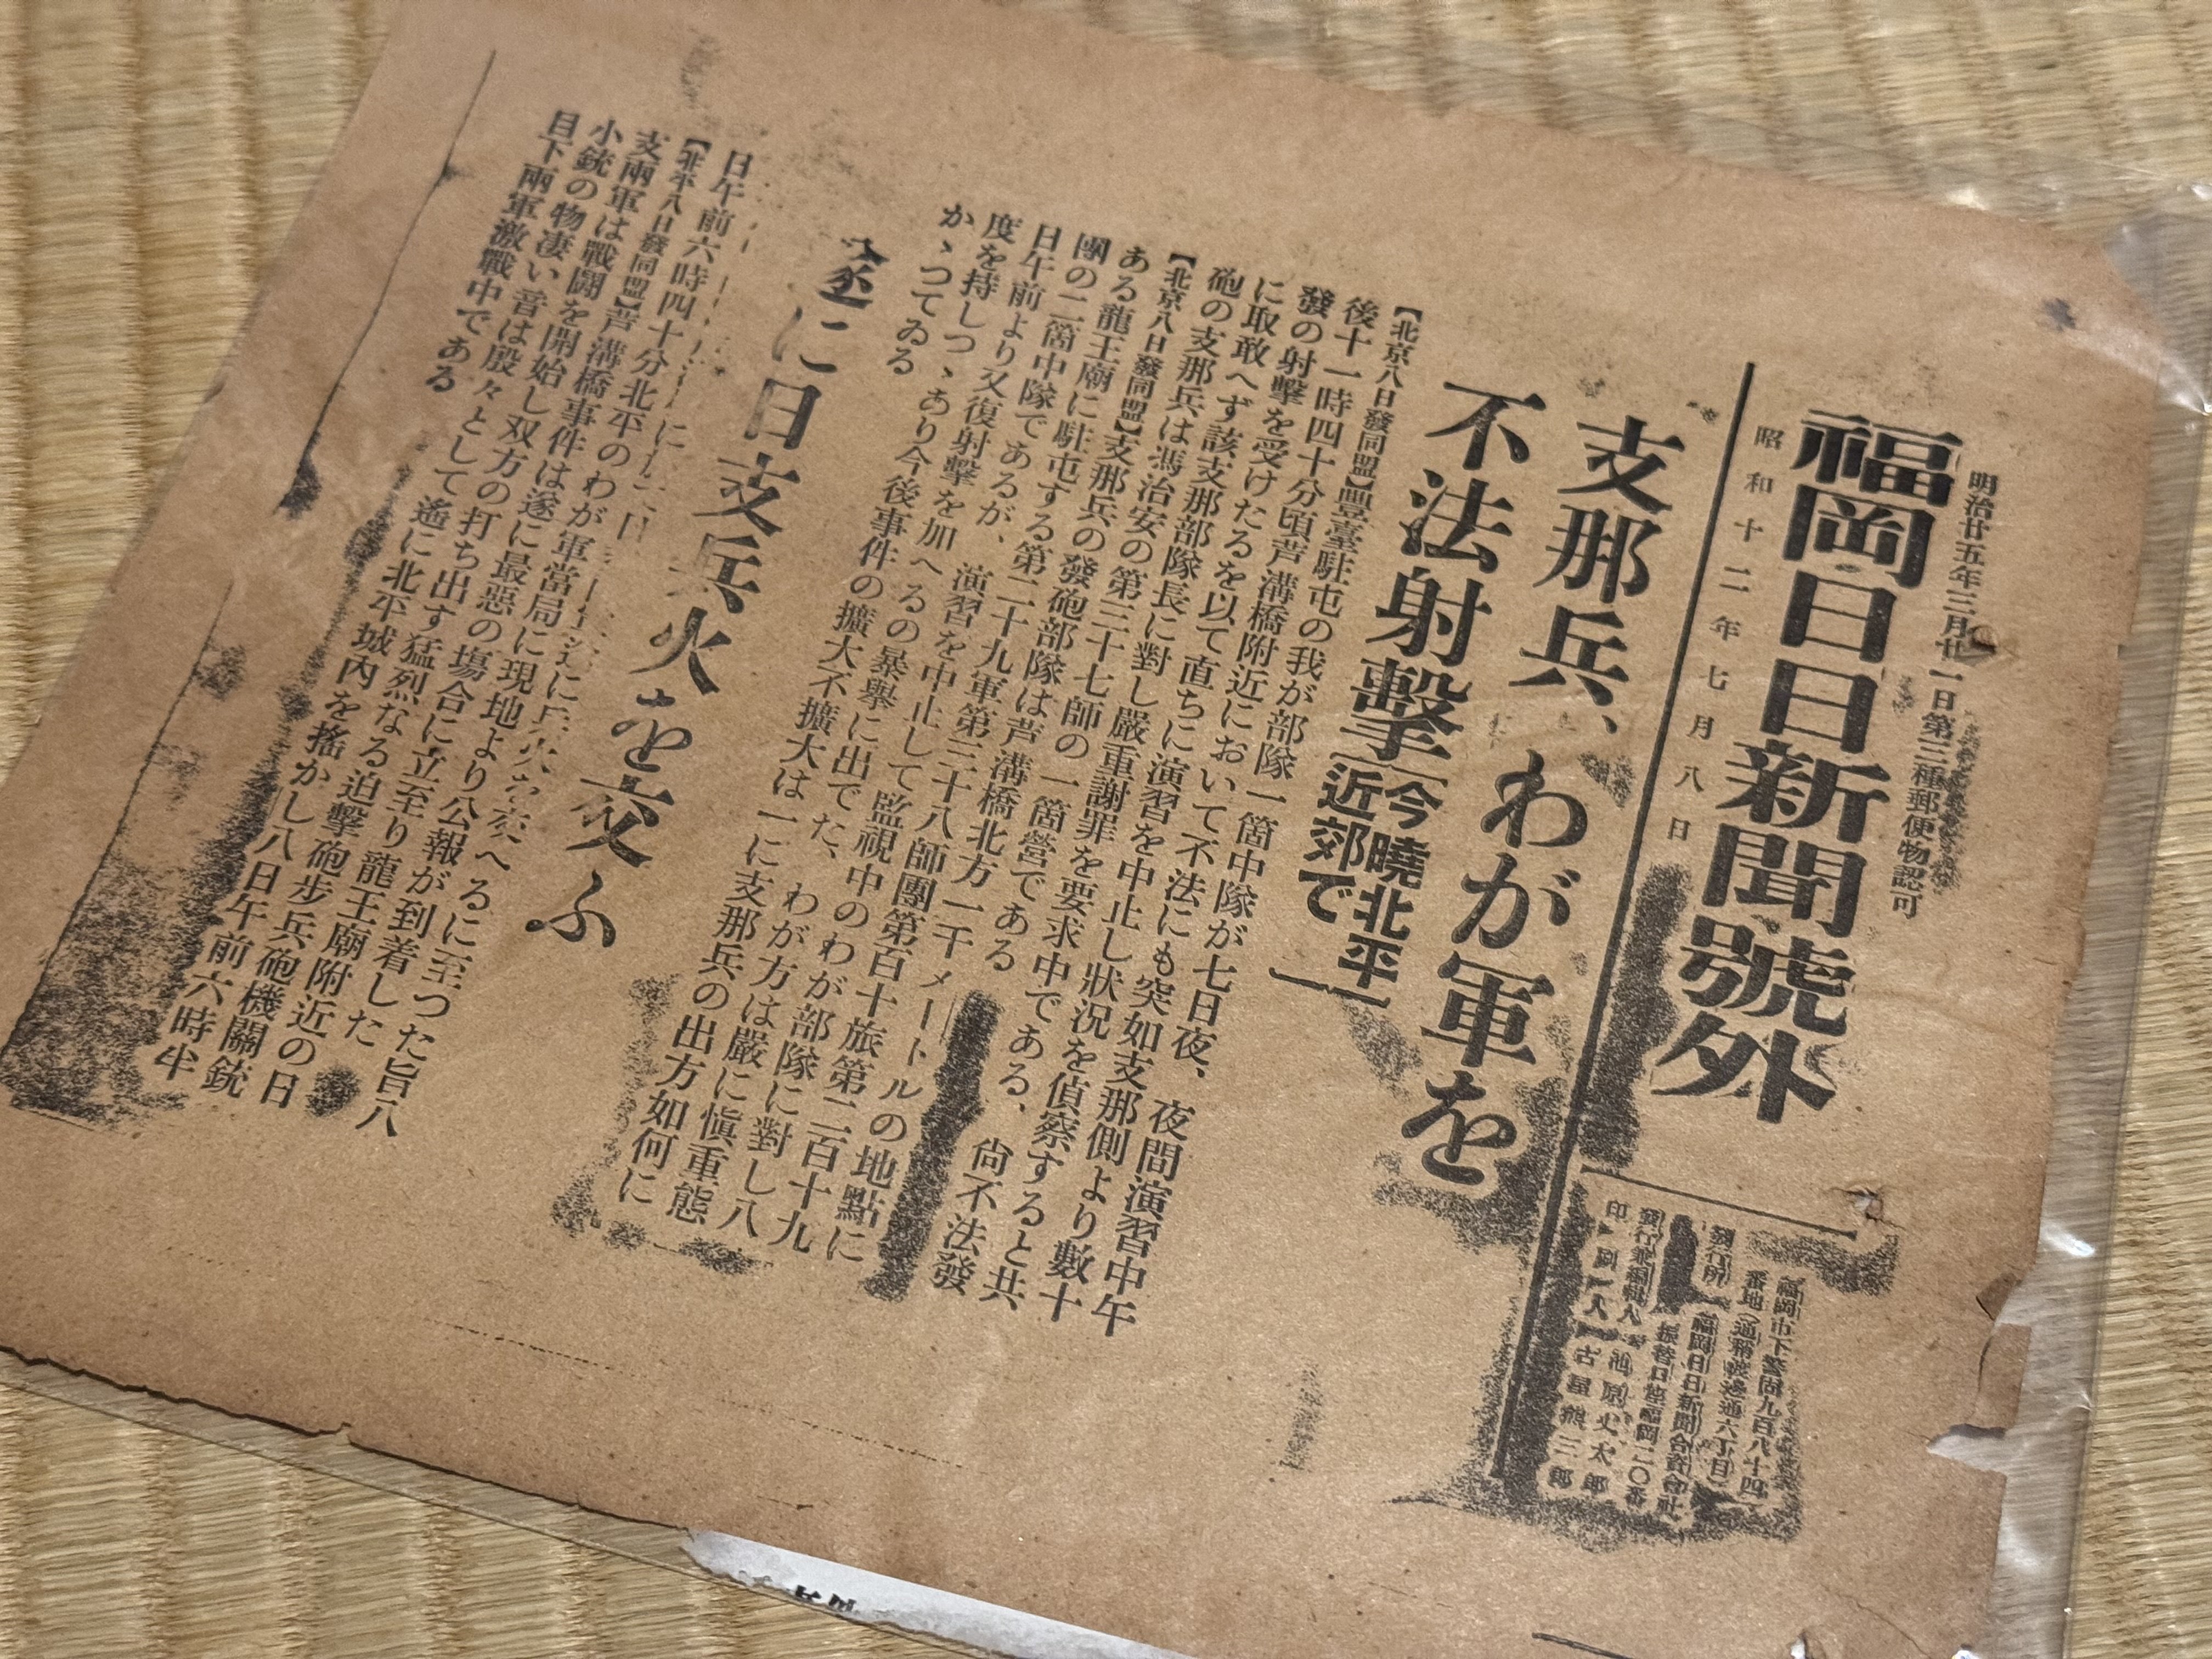 明治廿五年三月廿一日第三種郵便物認可
福岡日日新聞號外
昭和十二年七月八日
福岡市下警固九百八十四
番地(通稱渡邊通六丁目)
發行所
福岡日日新聞合資會社
振替口座福岡二〇番
發行兼編輯人
印刷人 古屋熊三郎
支那兵、わが軍を
不法射擊
今曉北平
近郊で
【北京八日發同盟】豐臺駐屯の我が部隊一箇中隊が七日夜、夜間演習中午
後十一時四十分頃芦溝橋附近において不法にも突如支那側より數十
發の射擊を受けたるを以て直ちに演習を中止し狀況を偵察すると共
に取敢へず該支那部隊長に對し嚴重謝罪を要求中である、尙不法發
砲の支那兵は馮治安の第三十七師の一箇營である
【北京八日發同盟】支那兵の發砲部隊は芦溝橋北方一千メートルの地點に
ある龍王廟に駐屯する第二十九軍第三十八師團第百十旅第二百十九
團の二箇中隊であるが、演習を中止して監視中のわが部隊に對し八
日午前より又復射擊を加へるの暴擧に出でた、わが方は嚴に愼重態
度を持しつゝあり今後事件の擴大不擴大は一に支那兵の出方如何に
かゝつてゐる
遂に日支兵火を交ふ
遂に兵火を交へるに至つた旨八
日午前六時四十分北平のわが軍當局に現地より公報が到着した
【北平八日發同盟】芦溝橋事件は遂に最惡の場合に立至り龍王廟附近の日
支兩軍は戰鬪を開始し双方の打ち出す猛烈なる迫擊砲步兵砲機關銃
小銃の物凄い音は殷々として遙に北平城內を搖かし八日午前六時半
目下兩軍激戰中である